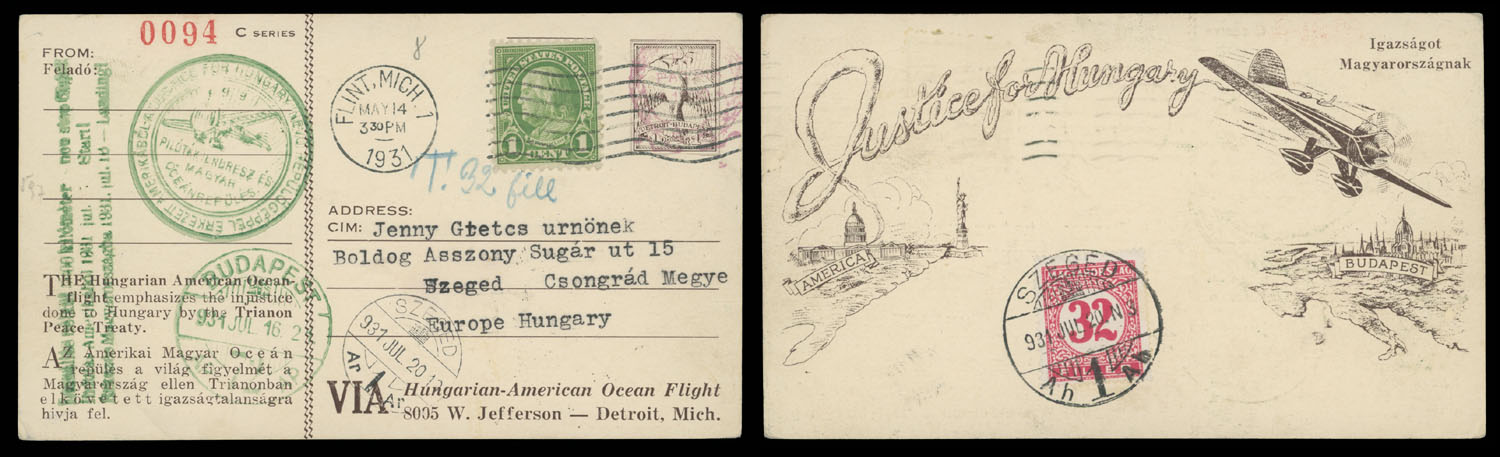 0094 C SERIES
FROM:
Feladó:
8
FLINT, MICH. 1
MAY 14
3 30 PM
1931
UNITED STATES POSTAGE
1 CENT 1
T. 32 fill
PILOTÁK: ENDRESZ ÉS
MAGYAR
OCEÁNREPÜLÉS
ADDRESS:
CIM: Jenny Gtetcs urnönek
Boldog Asszony Sugár ut 15
Szeged Csongrád Megye
Europe Hungary
THE Hungarian American Ocean-
flight emphasizes the injustice
done to Hungary by the Trianon
Peace Treaty.
AZ Amerikai Magyar Oceán
repülés a világ figyelmét a
Magyarország ellen Trianonban
elkövetett igazságtalanságra
hivja fel.
BUDAPEST
931 JUL 16
SZEGED
931 JUL 20
VIA Hungarian-American Ocean Flight
8005 W. Jefferson — Detroit, Mich.
Justice for Hungary
Igazságot
Magyarországnak
AMERICA
BUDAPEST
SZEGED
32
931 JUL 20
1